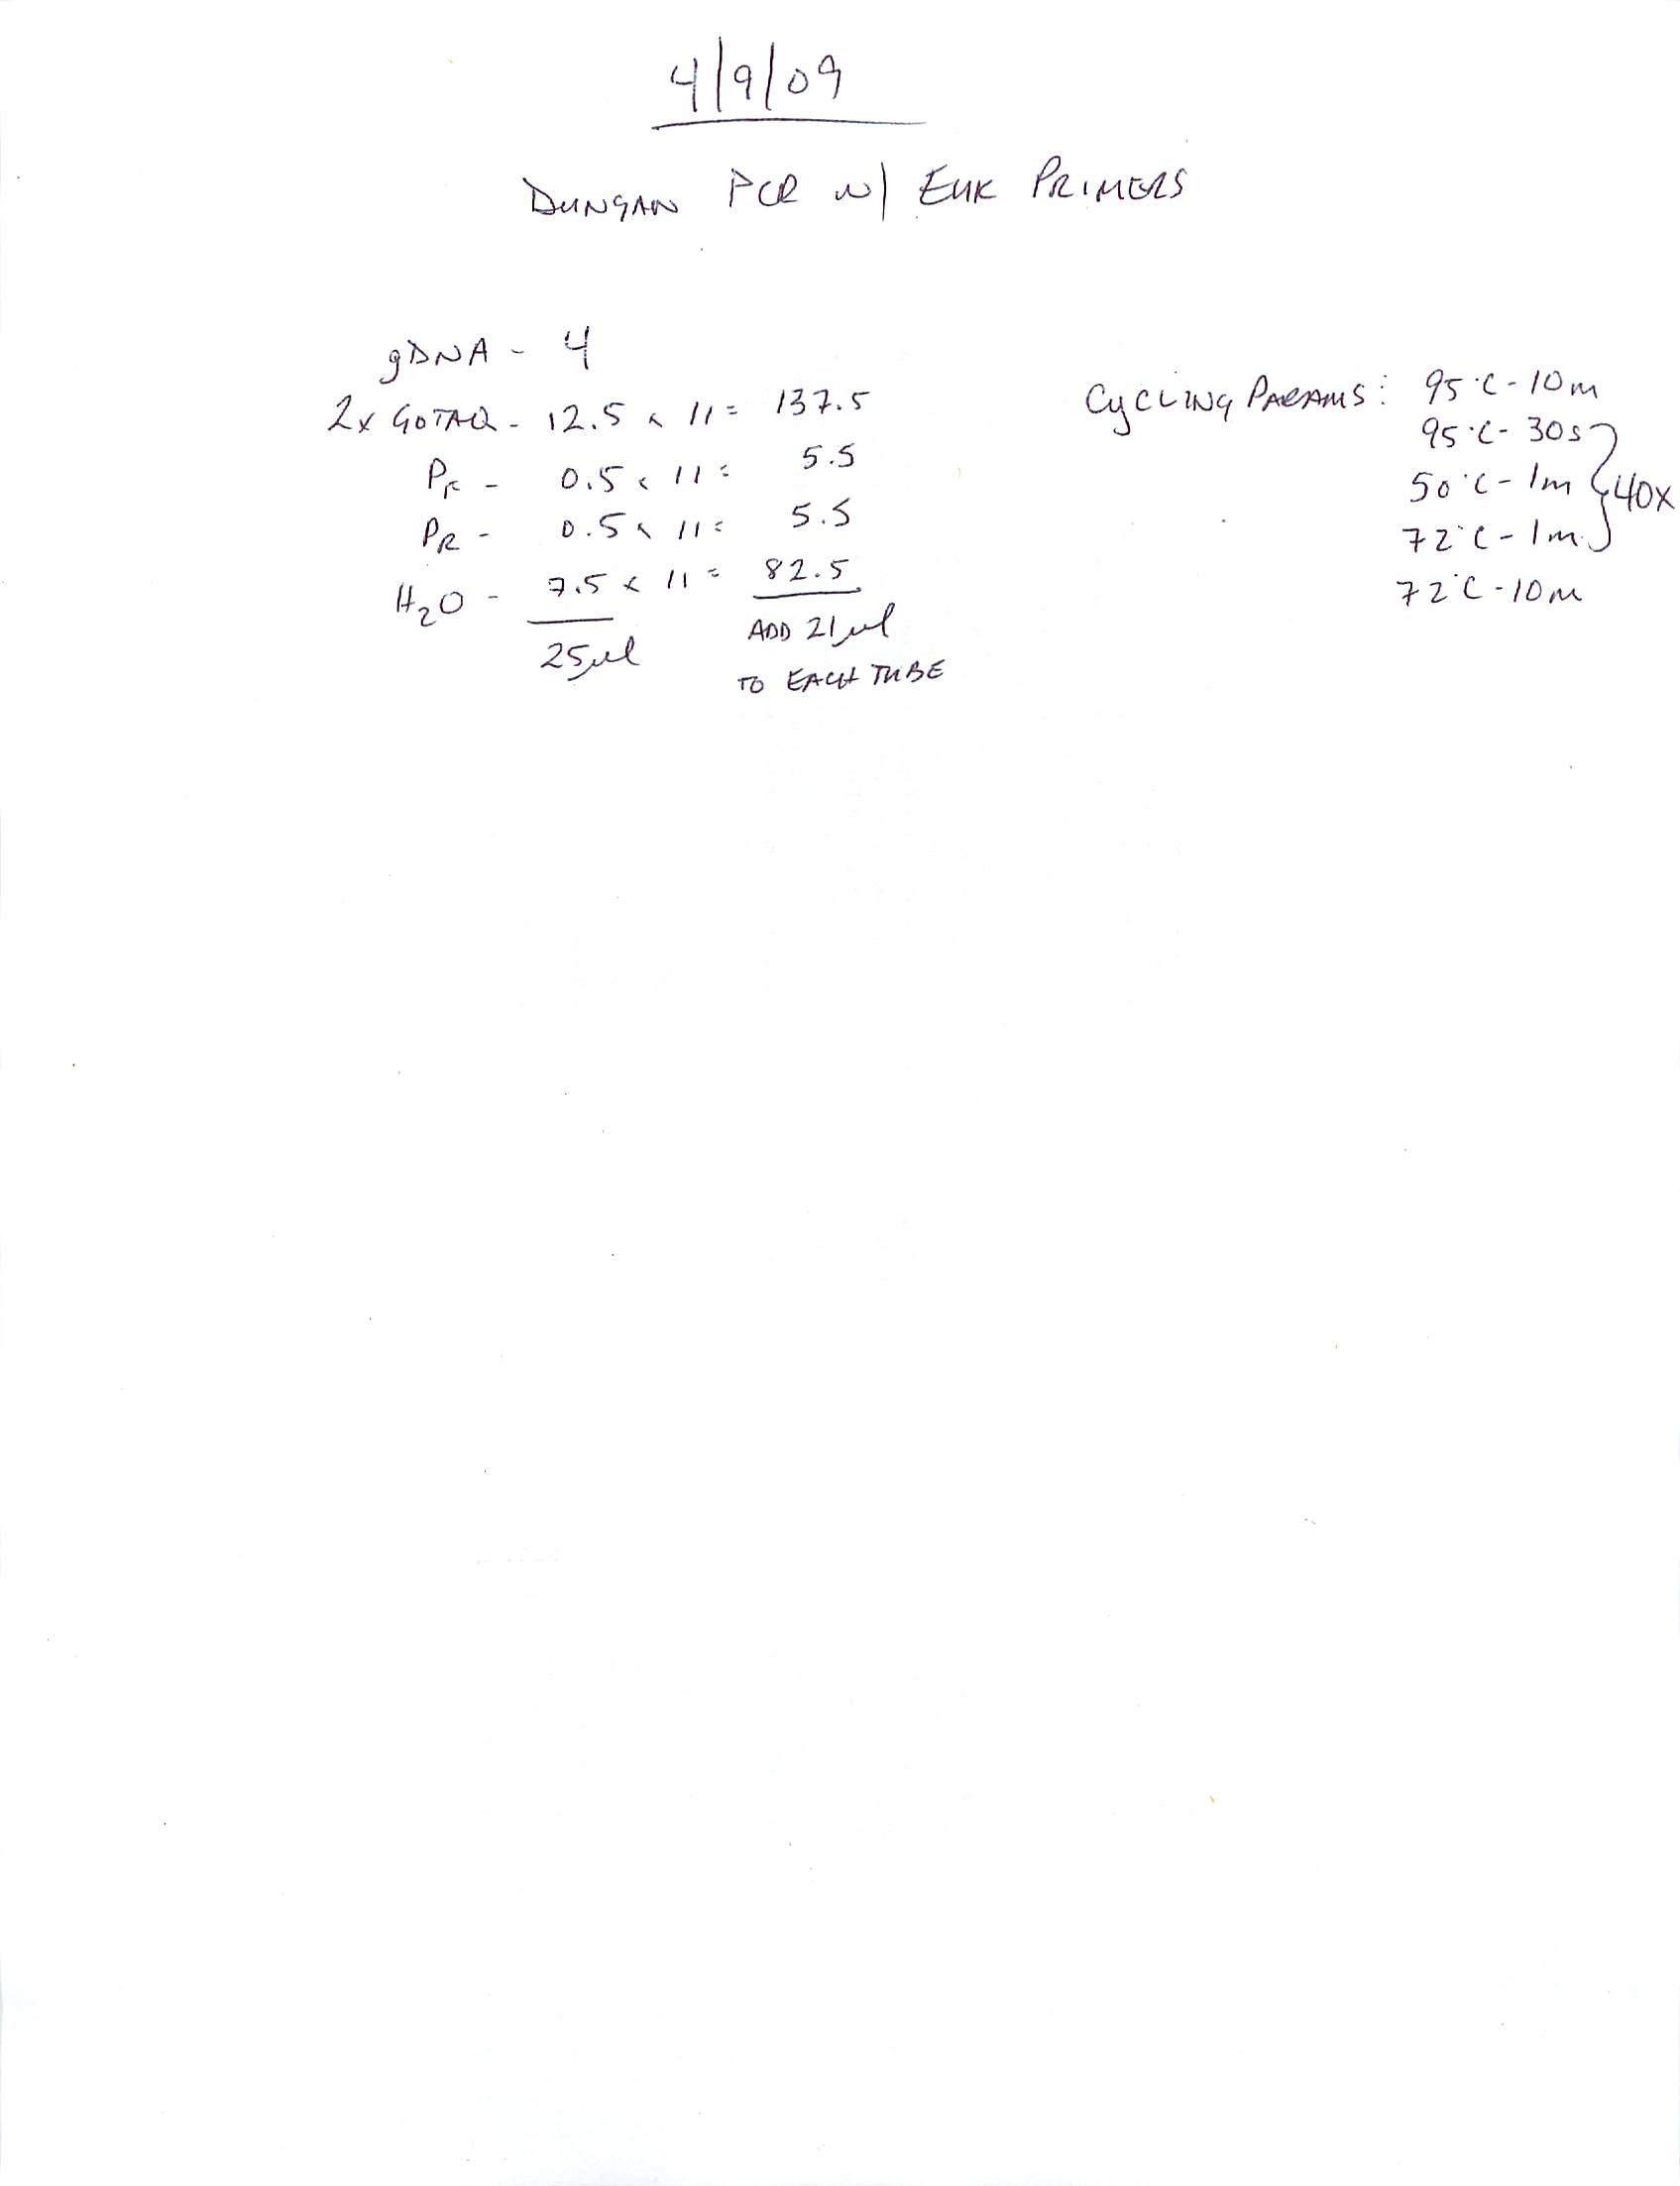 4/9/09
DUNGAN PCR w/ EUK PRIMERS
gDNA - 4
2x GOTAQ - 12.5 x 11 = 137.5
PF - 0.5 x 11 = 5.5
PR - 0.5 x 11 = 5.5
H2O - 7.5 x 11 = 82.5
25µl
ADD 21µl
TO EACH TUBE
CYCLING PARAMS: 95°C - 10m
95°C - 30s
50°C - 1m
72°C - 1m
40x
72°C - 10m